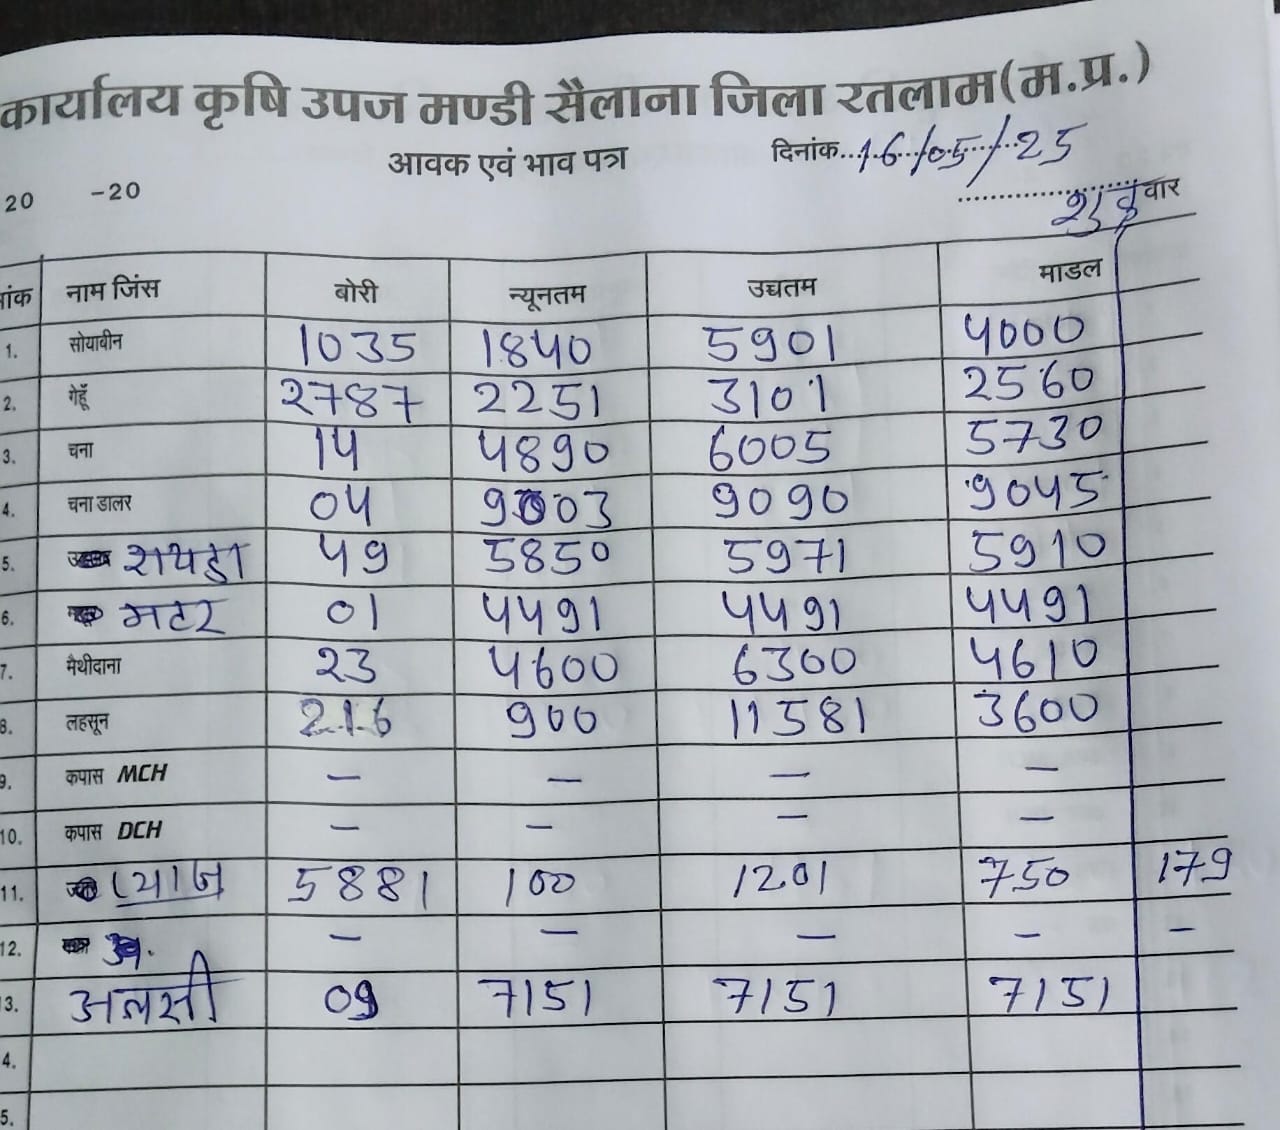 कार्यालय कृषि उपज मण्डी सैलाना जिला रतलाम(म.प्र.)
आवक एवं भाव पत्र
दिनांक..16/05/25
20 -20
शुक्रवार
नाम जिंस बोरी न्यूनतम उच्चतम माडल
1. सोयाबीन 1035 1840 5901 4000
2. गेहूँ 2787 2251 3101 2560
3. चना 14 4890 6005 5730
4. चना डालर 04 9003 9090 9045
5. रायडा 49 5850 5971 5910
6. मटर 01 4491 4491 4491
7. मैथीदाना 23 4600 6300 4610
8. लहसून 216 900 11581 3600
9. कपास MCH – – – –
10. कपास DCH – – – –
11. प्याज 5881 100 1201 750 179
12. – – – – –
13. अलसी 09 7151 7151 7151
4.
5.